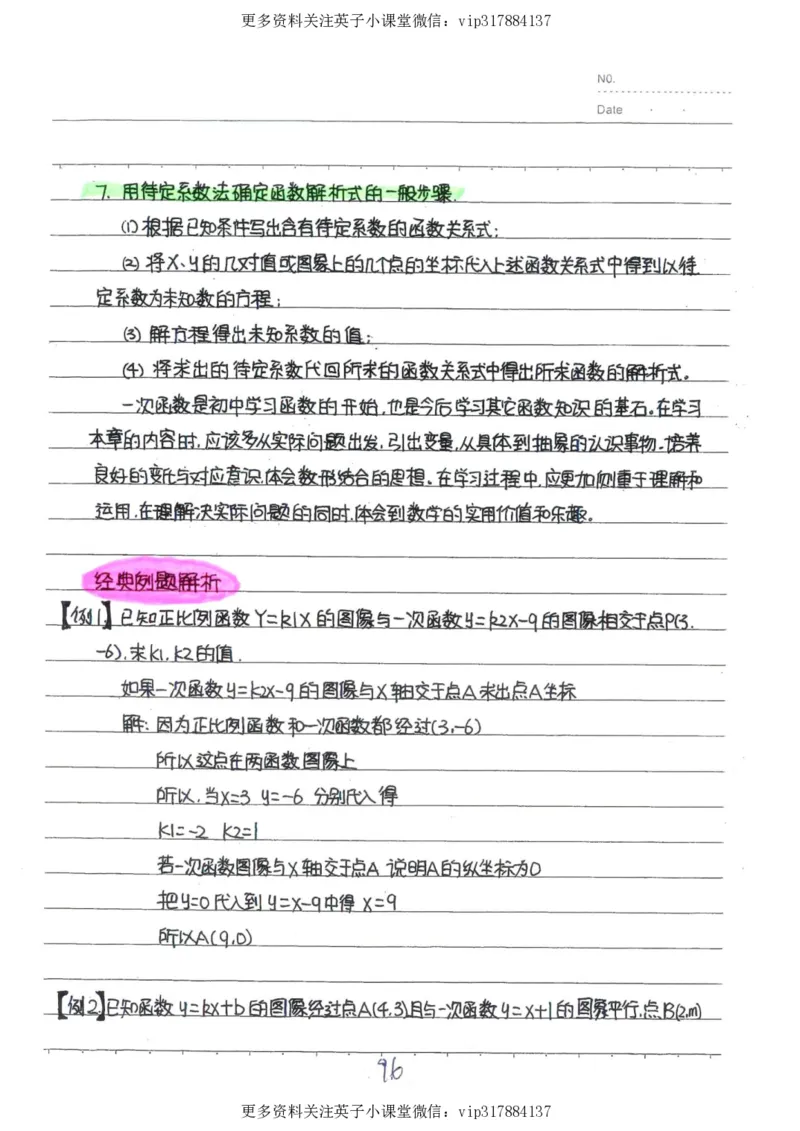 更多资料关注英子小课堂微信：vip317884137
NO.
Date
7. 用待定系数法确定函数解析式的一般步骤.
(1) 根据已知条件写出含有待定系数的函数关系式；
(2) 将X、y的几对值或图象上的几个点的坐标代入上述函数关系式中得到以待
定系数为未知数的方程；
(3) 解方程得出未知系数的值；
(4) 将求出的待定系数代回所求的函数关系式中得出所求函数的解析式。
一次函数是初中学习函数的开始,也是今后学习其它函数知识的基石。在学习
本章的内容时,应该多从实际问题出发,引出变量,从具体到抽象的认识事物.培养
良好的变化与对应意识,体会数形结合的思想。在学习过程中,应更加侧重于理解和
运用,在理解决实际问题的同时,体会到数学的实用价值和乐趣。
经典例题解析
【例1】已知正比例函数Y=k1X的图像与一次函数y=k2x-9的图像相交于点P(3.
-6),求k1,k2的值.
如果一次函数y=k2x-9的图像与X轴交于点A求出点A坐标
解:因为正比例函数和一次函数都经过(3,-6)
所以这点在两函数图像上
所以,当x=3 y=-6 分别代入得
k1=-2 k2=1
若一次函数图像与X轴交于点A 说明A的纵坐标为0
把y=0代入到y=x-9中得 x=9
所以A(9,0)
【例2】已知函数y=kx+b的图像经过点A(4,3)且与一次函数y=x+1的图象平行,点B(2,m)
96
更多资料关注英子小课堂微信：vip317884137